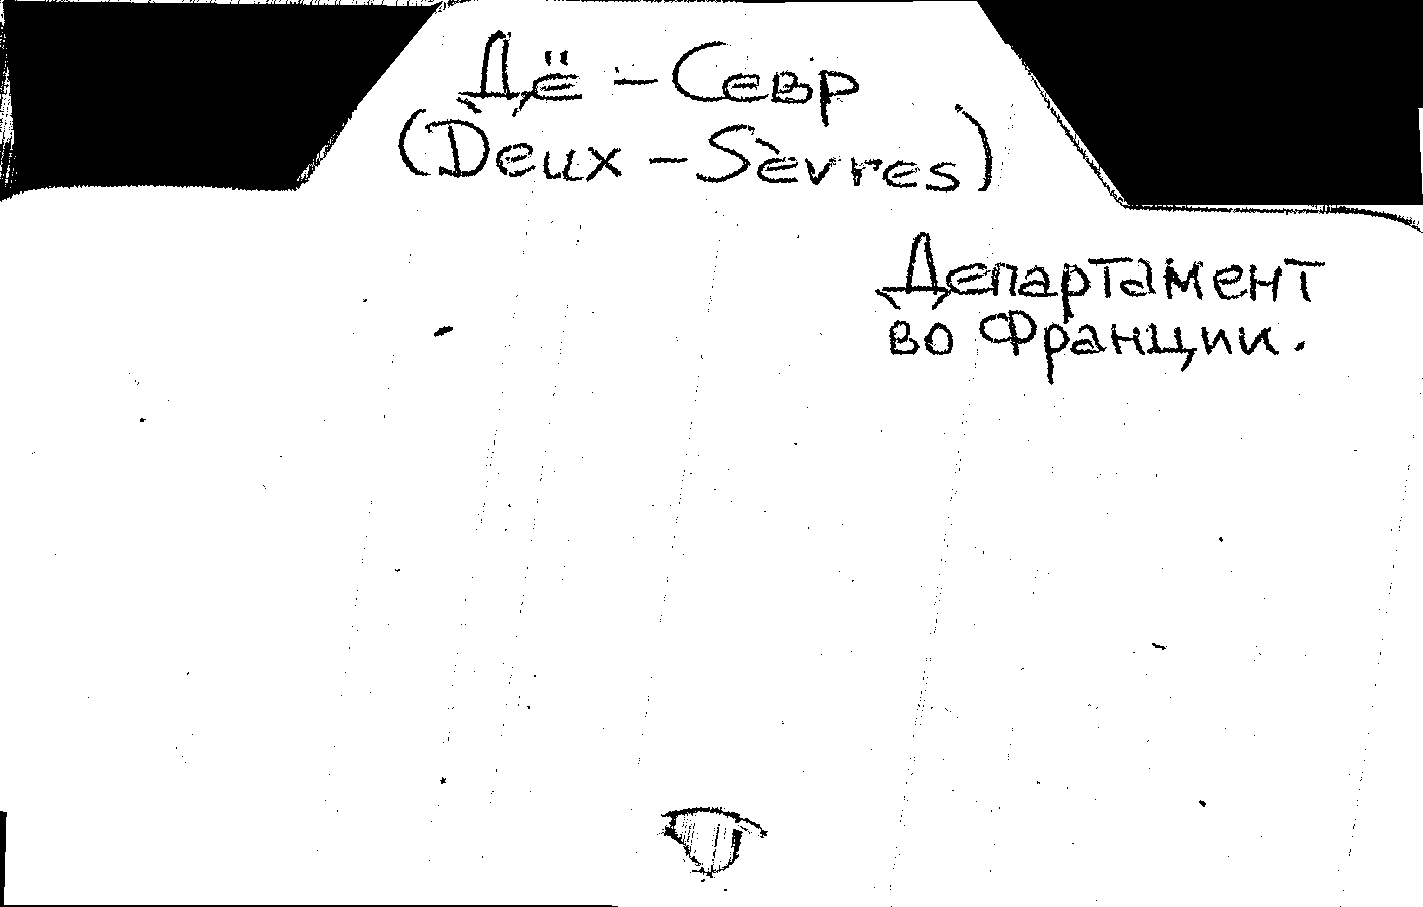 Дё - Севр
(Deux - Sèvres)
Департамент
во Франции.